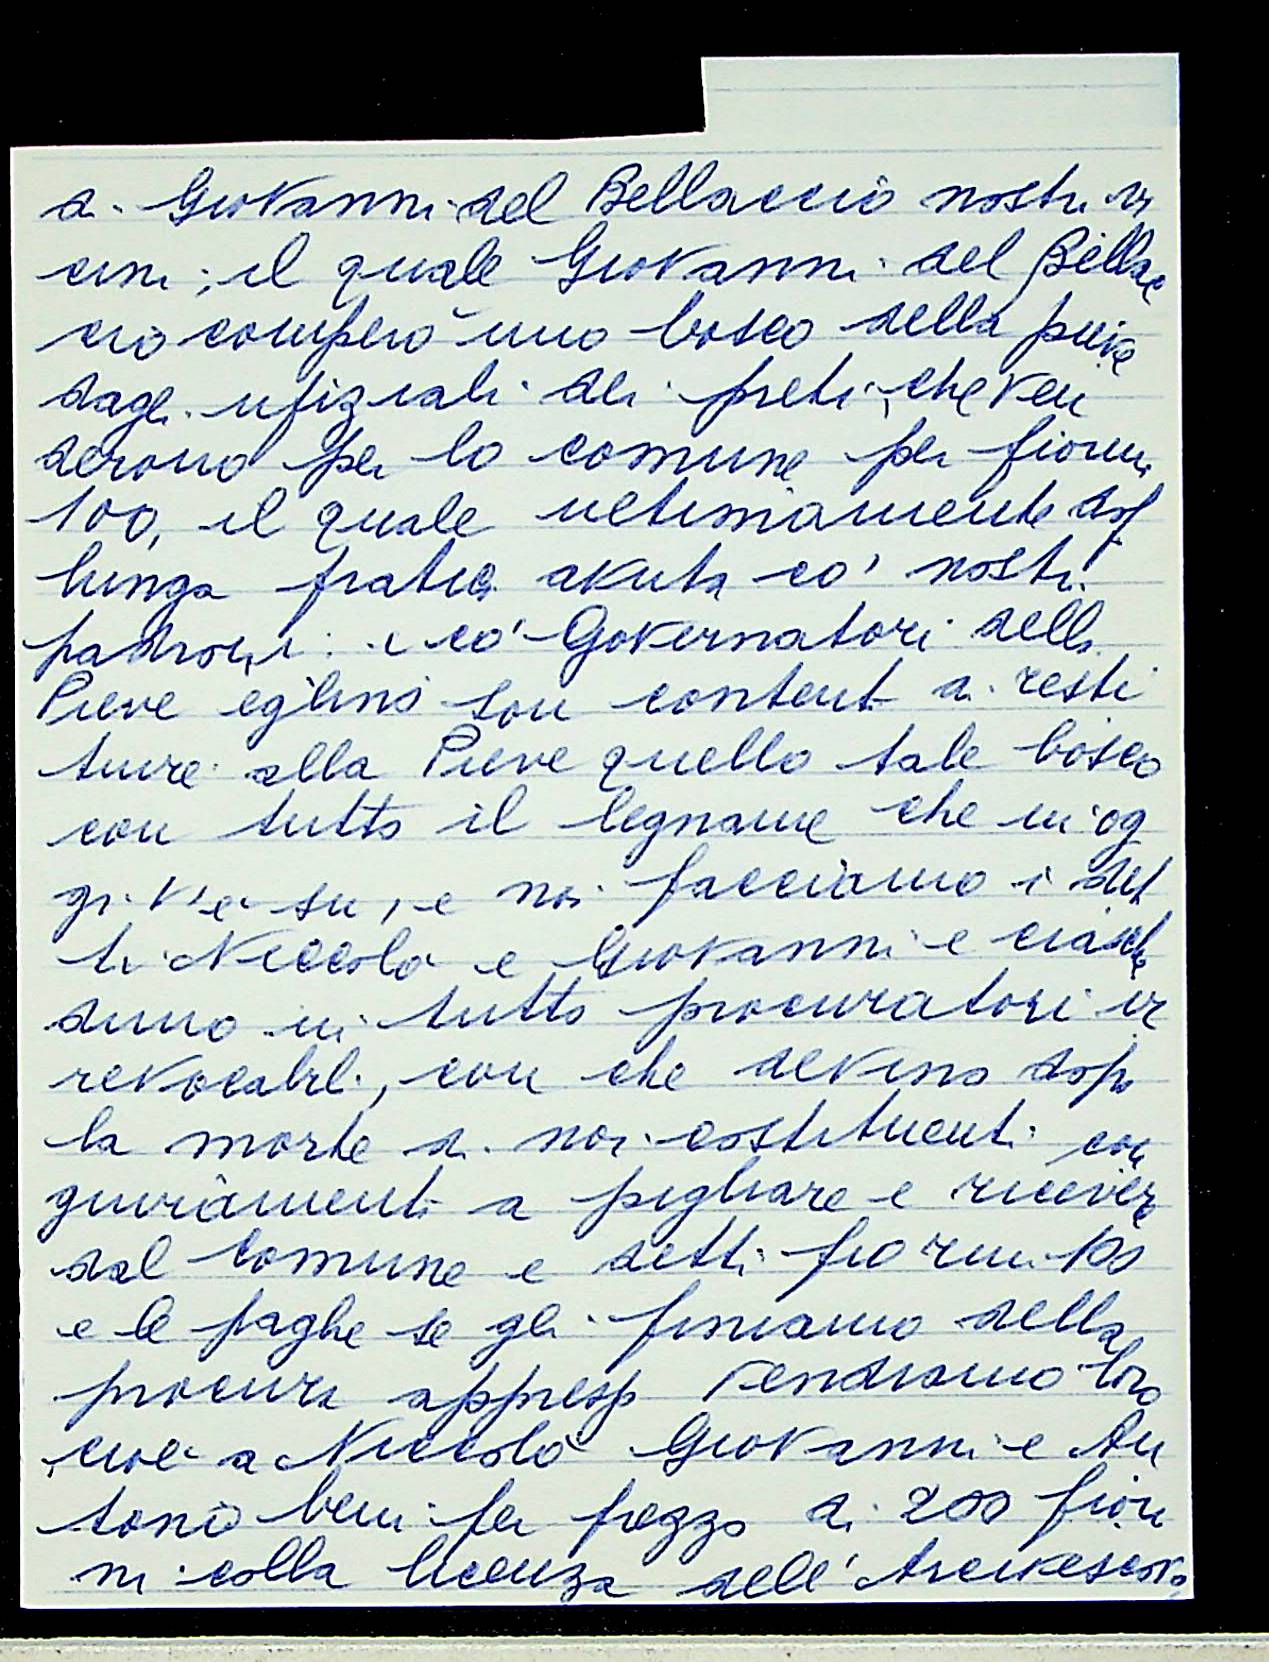 di Giovanni del Bellaccio nostri vi
cini; il quale Giovanni del Bellac
cio comperò uno bosco della pieve
dagli ufiziali dei preti, che ven
derono per lo comune per fiorini
100, il quale ultimamente dopo
lunga pratica avuta co' nostri
padroni e co' Governatori della
Pieve eglino son contenti a resti
tuire alla Pieve quello tale bosco
con tutto il legname che in og
gi v'è su, e noi facciamo i det
ti Niccolò e Giovanni e ciasche
duno in tutto procuratori ir
revocabili, con che devino dopo
la morte di noi costituenti con
giuriamenti a pigliare e ricever
dal Comune e detti fiorini 100
e le paghe se gli finiamo della
procura appresso vendiamo loro
cioè a Niccolò Giovanni e An
tonio beni per prezzo di 200 fiori
ni colla licenza dell'Arcivescovo,